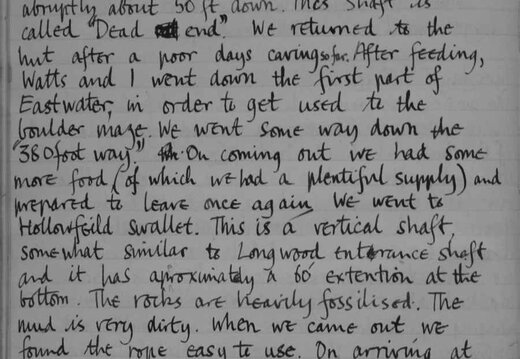 abruptly about 50 ft down. This shaft is
called "Dead end". We returned to the
hut after a poor days caving so far. After feeding,
Watts and I went down the first part of
Eastwater, in order to get used to the
boulder maze. We went some way down the
"380 foot way." On coming out we had some
more food (of which we had a plentiful supply) and
prepared to leave once again. We went to
Hollowfeild Swallet. This is a vertical shaft,
somewhat similar to Longwood entrance shaft
and it has aproximately a 60' extention at the
bottom. The rocks are heavily fossilised. The
mud is very dirty. When we came out we
found the rope easy to use. On arriving at